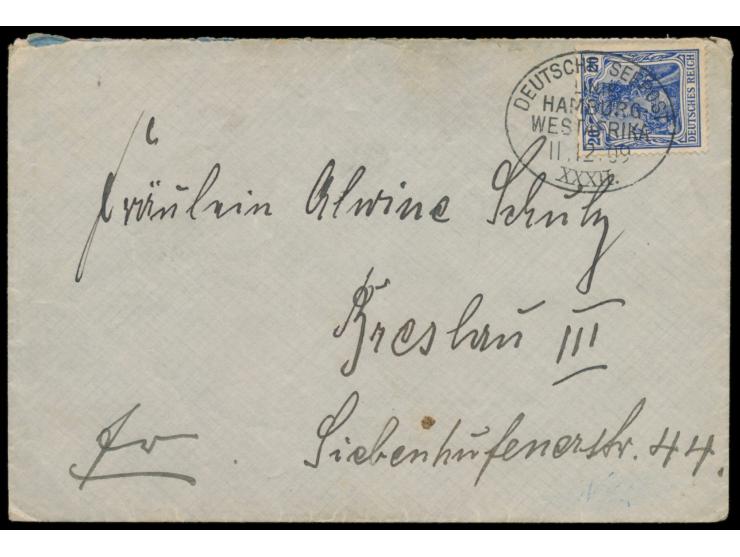 DEUTSCHE SEEPOST
LINIE
HAMBURG-
WESTAFRIKA
11.12.09
XXXII.
20
DEUTSCHES REICH
Fräulein Alwine Schulz
Breslau III
Siebenhufenerstr. 44.
fr